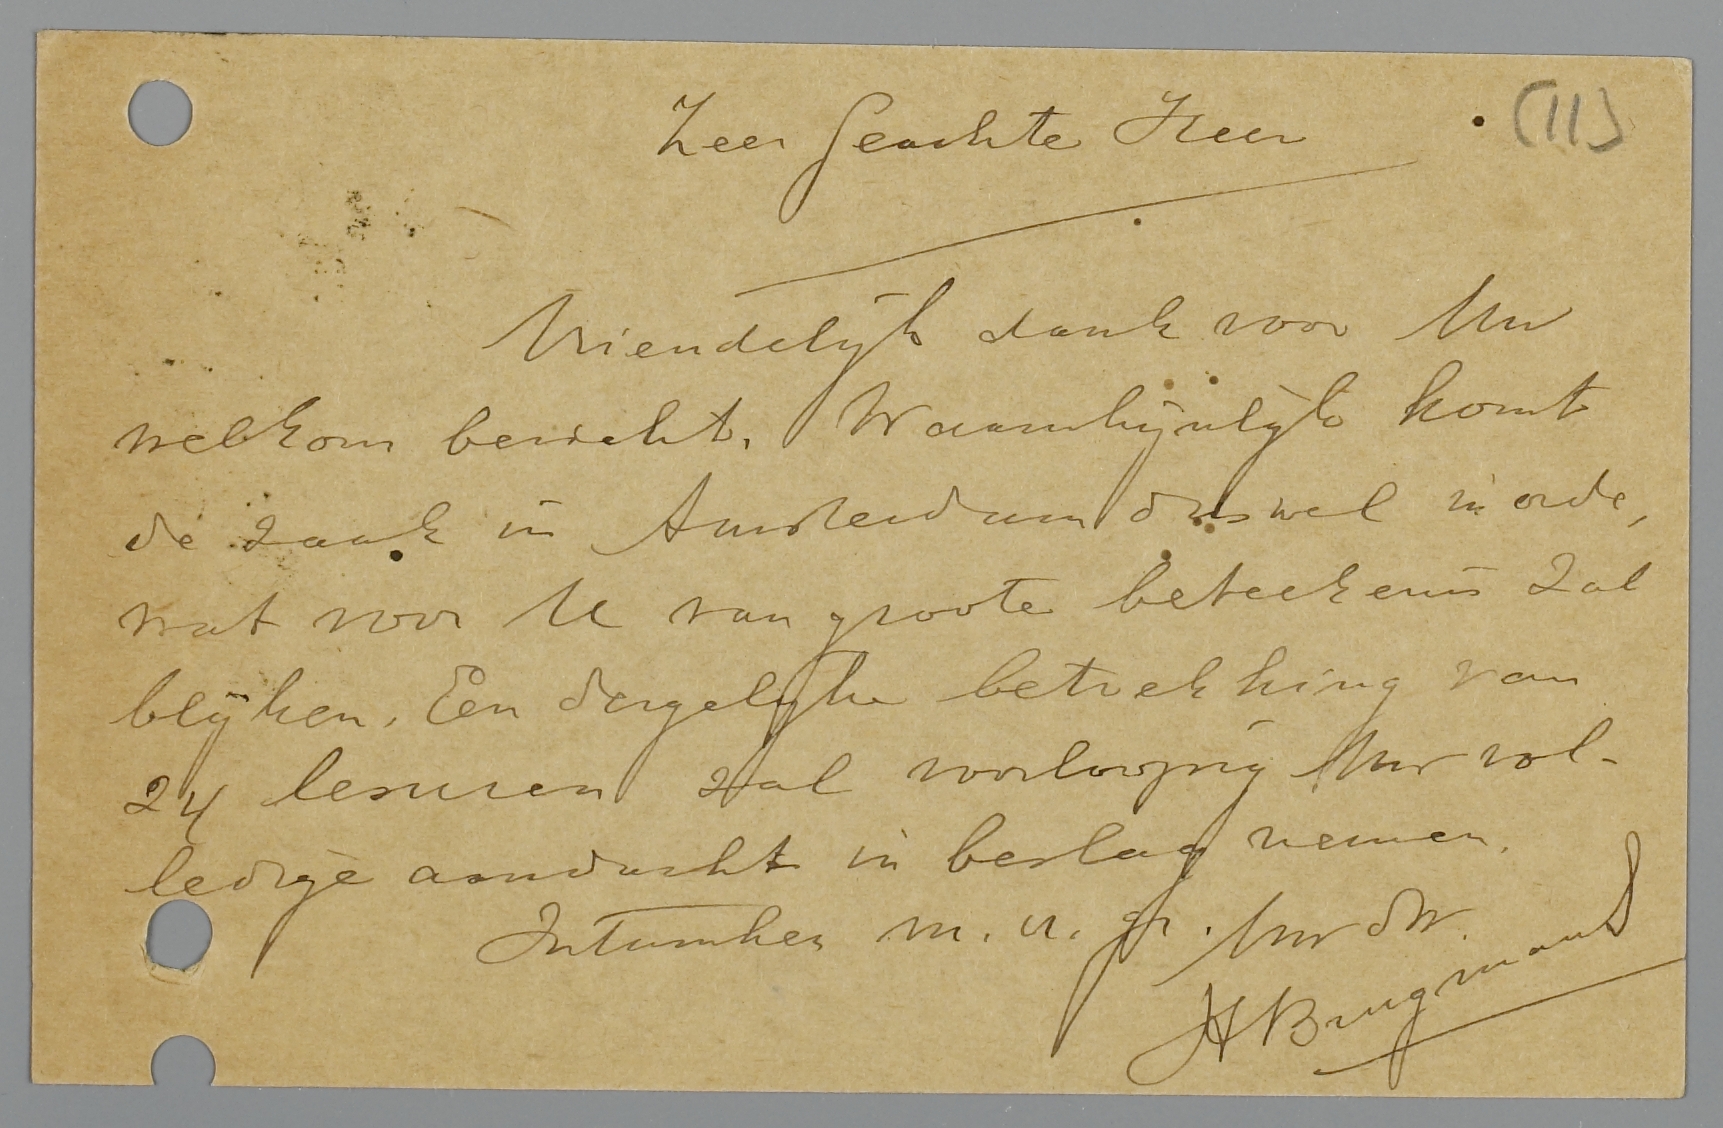 (11)
Zeer Geachte Heer
Vriendelijk dank voor Uw
welkom bericht. Waarschijnlijk komt
de zaak in Amsterdam dus wel in orde,
wat voor U van groote beteekenis zal
blijken. Een dergelijke betrekking van
24 lesuren zal voorloopig Uw vol-
ledige aandacht in beslag nemen.
Intusschen m. v. gr. Uw dw.
HBrugmans